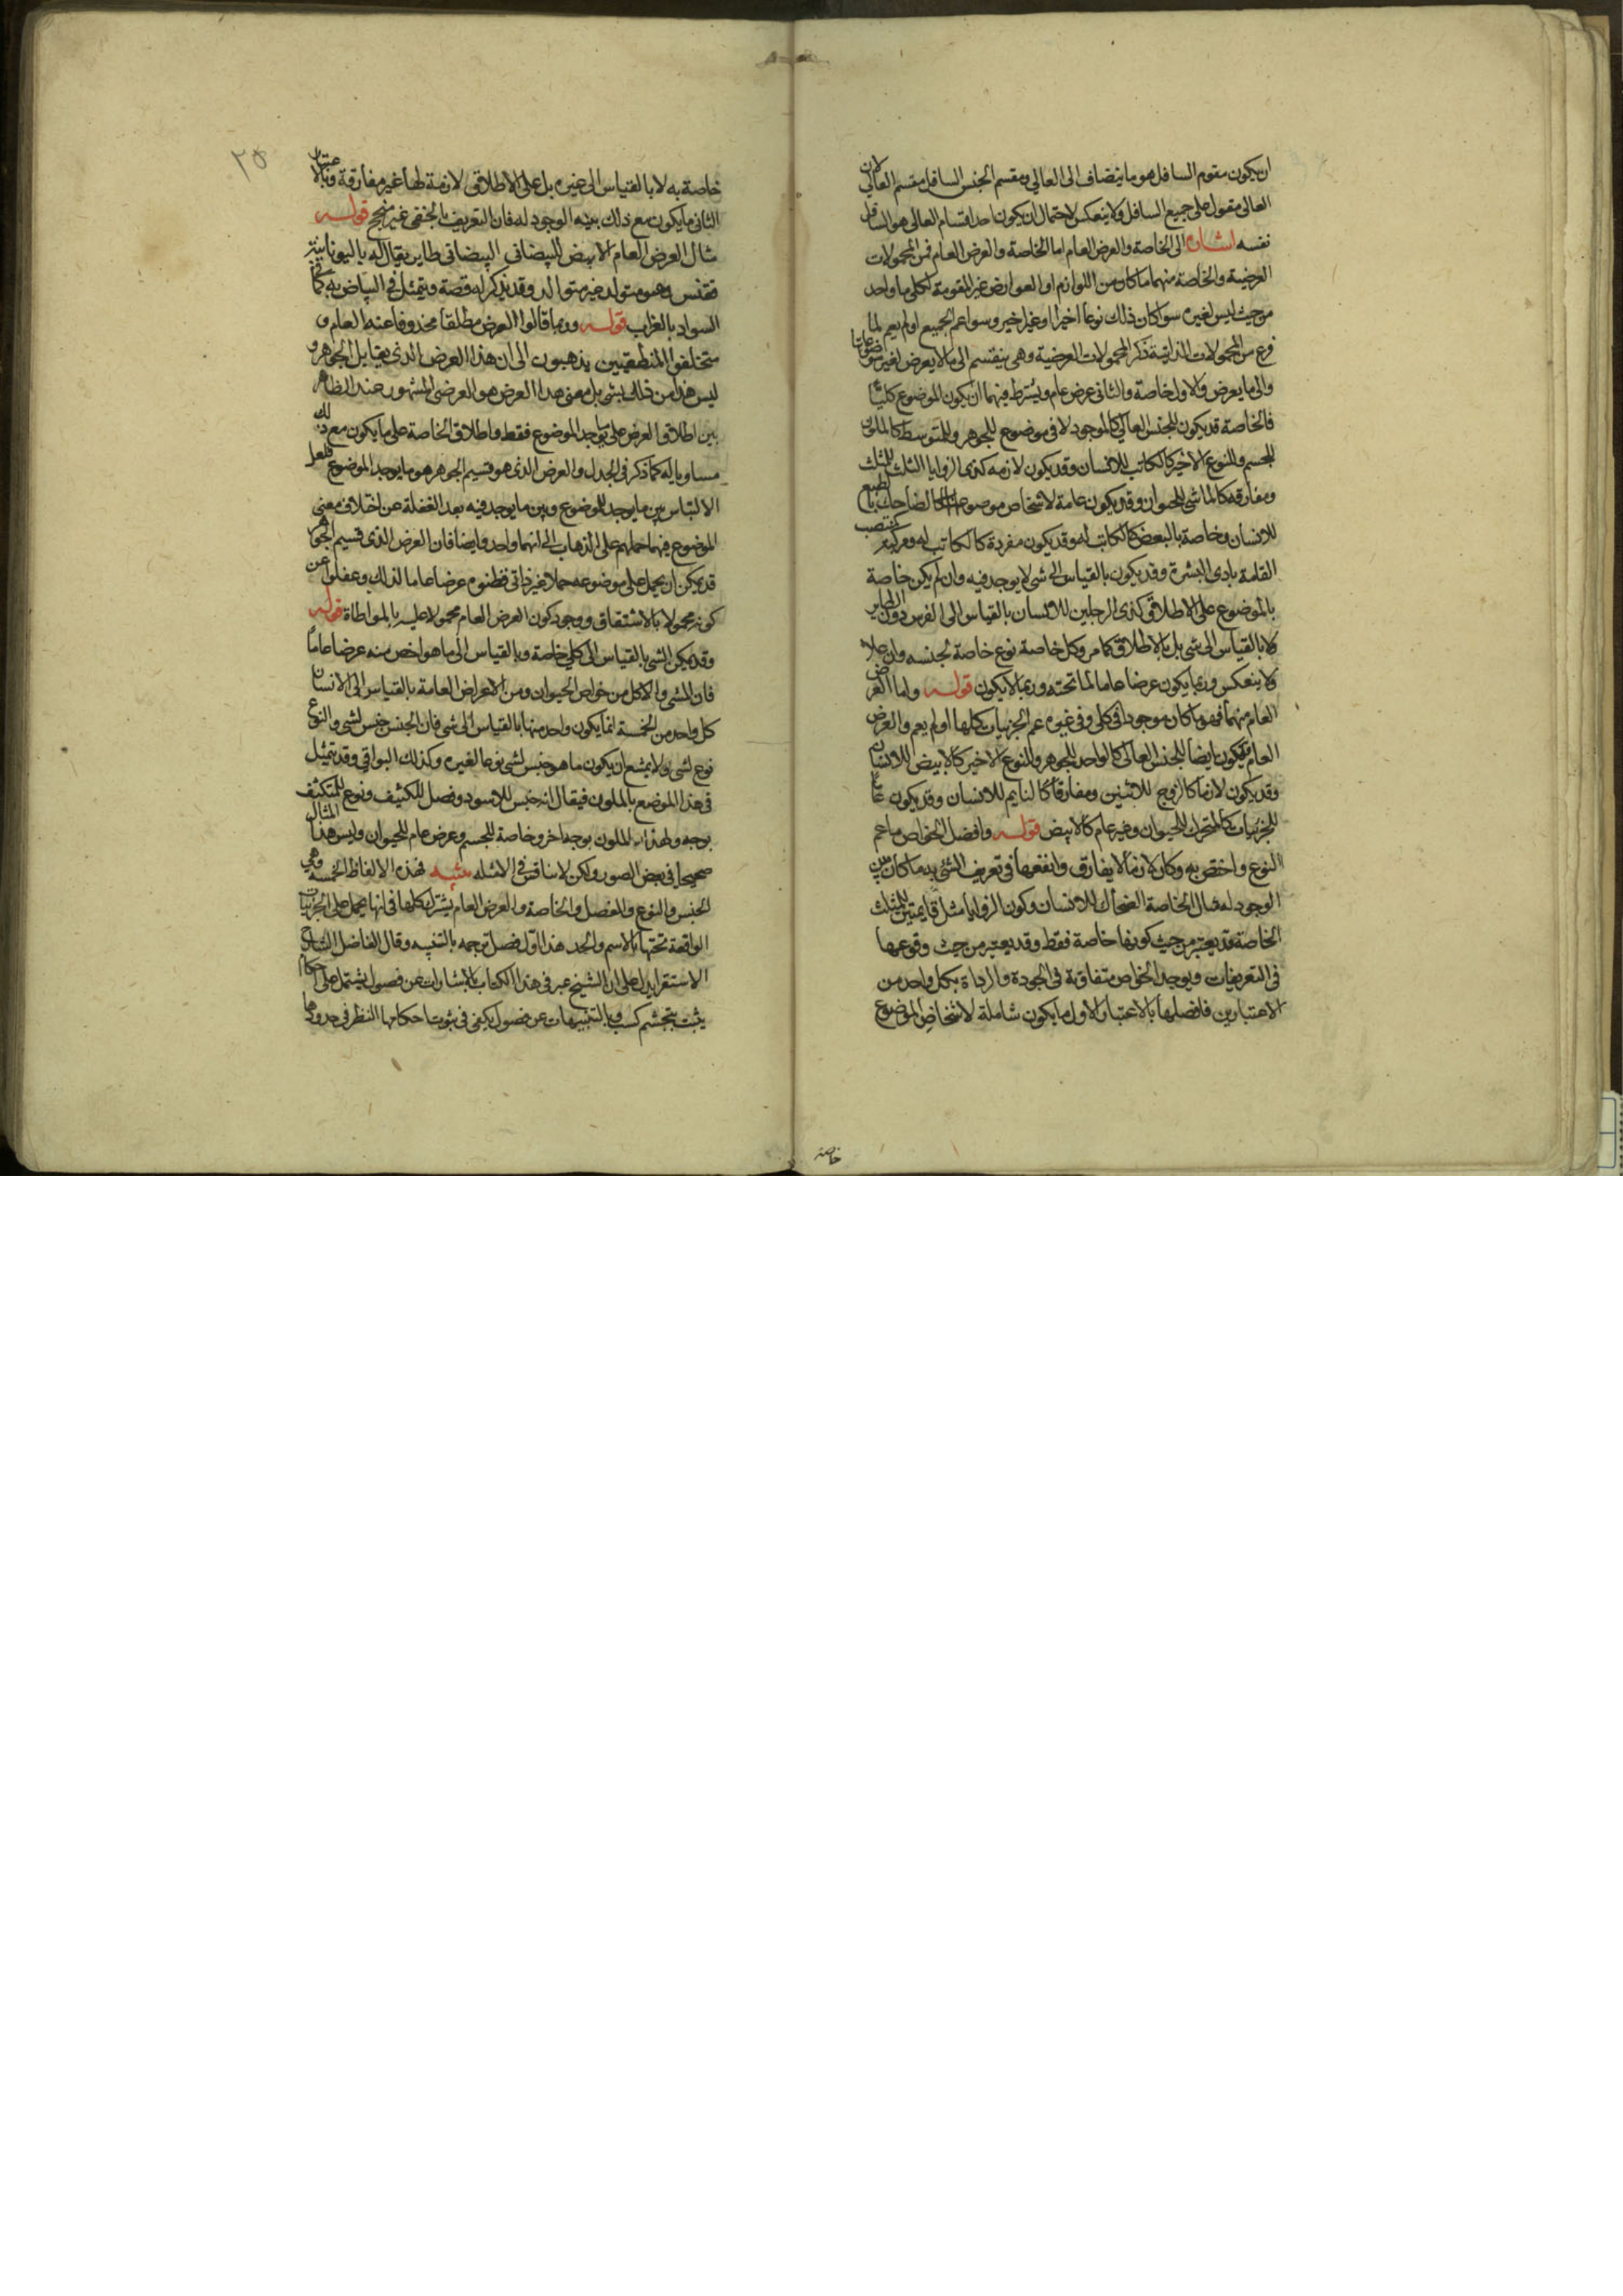 ان يكون مقوم السافل هو ما ينضاف الى العالي ومقسم الجنس السافل مقسم العالي لان
العالى مقول على جميع السافل ولا ينعكس لاحتمال ان يكون احد اقسام العالى هو السافل
نفسه اشارة الى الخاصة والعرض العام اما الخاصة والعرض العام فمن المحمولات
العرضية والخاصة منهما ما كان من اللوازم او العوارض غير المقومة لكلى ما واحد
من حيث ليس لغيره سوا كان ذلك نوعا اخيرا او غير اخير وسوا عم الجميع او لم يعم لما
فرغ من المحمولات الذاتية ذكر المحمولات العرضية وهى ينقسم الى ما لا يعرض لغير موضوعاتها
والى ما يعرض والاول خاصة والثانى عرض عام ويشترط فيهما ان يكون الموضوع كليا
فالخاصة قد يكون للجنس العالي كالموجود لا فى موضوع للجوهر وللمتوسط كالملون
للجسم وللنوع الاخير كالكاتب للانسان وقد يكون لازمه كذى الزوايا الثلث للمثلث
ومفارقه كالماشى للحيوان وقد يكون عامة لاشخاص موضوعها كالضاحك بالطبع
للانسان وخاصة بالبعض كالكاتب له وقد يكون مفردة كالكاتب له ومركبة كمنتصب
القامة بادى البشرة وقد يكون بالقياس الى شى لا يوجد فيه وان لم يكن خاصة
بالموضوع على الاطلاق كذى الرجلين للانسان بالقياس الى الفرس دون الطاير
ولا بالقياس الى شى بل بالاطلاق كما مر وكل خاصة نوع خاصة لجنسه وان علا
ولا ينعكس وربما يكون عرضا عاما لما تحته وربما لا يكون قوله واما العرض
العام منهما فهو ما كان موجودا فى كلى وفى غيره عم الجزئيات كلها او لم يعم والعرض
العام قد يكون ايضا للجنس العالى كالواحد للجوهر وللنوع الاخير كالابيض للانسان
وقد يكون لازما كالزوج للاثنين ومفارقا كالنايم للانسان وقد يكون عاما
للجزئيات كالمتحرك للحيوان وغير عام كالابيض قوله وافضل الخواص ما عم
النوع واختص به وكان لازما لا يفارق وانفعها فى تعريف الشئ به ما كان بين
الوجود له مثال الخاصة الضحاك للانسان وكون الزوايا مثل قايمتين للمثلث
الخاصة قد يعتبر من حيث كونها خاصة فقط وقد يعتبر من حيث وقوعها
فى التعريفات ويوجد الخواص متفاوتة فى الجودة والرداة بكل واحد من
الاعتبارين فافضلها بالاعتبار الاول ما يكون شاملة لاشخاص الموضوع
خاصه
٢٥
خاصة به لا بالقياس الى غيره بل على الاطلاق لازمة لها غير مفارقة وبالاعتبار
الثانى ما يكون مع ذلك بينه الوجود له فان التعريف بالخفى غير منجح قوله
مثال العرض العام الابيض للبيضانى البيضانى طاير يقال له باليونانية
ققنس وهو متولد غير متوالد وقد يذكر له قصة ويتمثل فى البياض به كما
السواد بالغراب قوله وربما قالوا العرض مطلقا محذوفا عنه العام و
متخلفوا المنطقيين يذهبون الى ان هذا العرض الذى يقابل الجوهر و
ليس هذا من ذلك بشى بل معنى هذا العرض هو العرضى المشهور عند الظاهر
بين اطلاق العرض على ما يوجد للموضوع فقط واطلاق الخاصة على ما يكون مع ذلك
مساويا له كما ذكر فى الجدل والعرض الذى هو قسيم الجوهر هو ما يوجد الموضوع فلعل
الالتباس بين ما يوجد للموضوع وبين ما يوجد فيه بعد الغفلة عن اختلاف معنى
الموضوع فيهما حملهم على الذهاب الى انهما واحد وايضا فان العرض الذى قسيم الجوهر
قد يمكن ان يحمل على موضوعه حملا غير ذاتى فظنوه عرضا عاما لذلك وغفلوا عن
كونه محمولا بالاشتقاق ووجود كون العرض العام محمولا عليه بالمواطاة قوله
وقد يكون الشى بالقياس الى كلي خاصة وبالقياس الى ما هو اخص منه عرضا عاما
فان المشى والاكل من خواص الحيوان ومن الاعراض العامة بالقياس الى الانسان
كل واحد من الخمسة انما يكون واحد منها بالقياس الى شى فان الجنس جنس لشى والنوع
نوع لشى ولا يمتنع ان يكون ما هو جنس لشى نوعا لغيره وكذلك البواقى وقد تمثل
فى هذا الموضع بالملون فيقال انه جنس للاسود وفصل للكثيف ونوع للمتكثف
بوجه ولهذا الملون بوجه اخر وخاصة للجسم وعرض عام للحيوان وليس هذا المثال
صحيحا فى بعض الصور ولكن لا مناقشة فى الامثله تنبيه فهذه الالفاظ الخمسه وهى
الجنس والنوع والفصل والخاصة والعرض العام يشترك كلها فى انها يحمل على الجزئيات
الواقعة تحتها بالاسم والحد هذا اول فصل ترجمه بالتنبيه وقال الفاضل الشارح
الاستقرا يدل على ان الشيخ عبر فى هذا الكتاب بالاشارات عن فصول يشتمل على احكام
يثبت بتجشم كسب وبالتنبيهات عن فصول يكفى فى ثبوت احكامها النظر فى حدودها